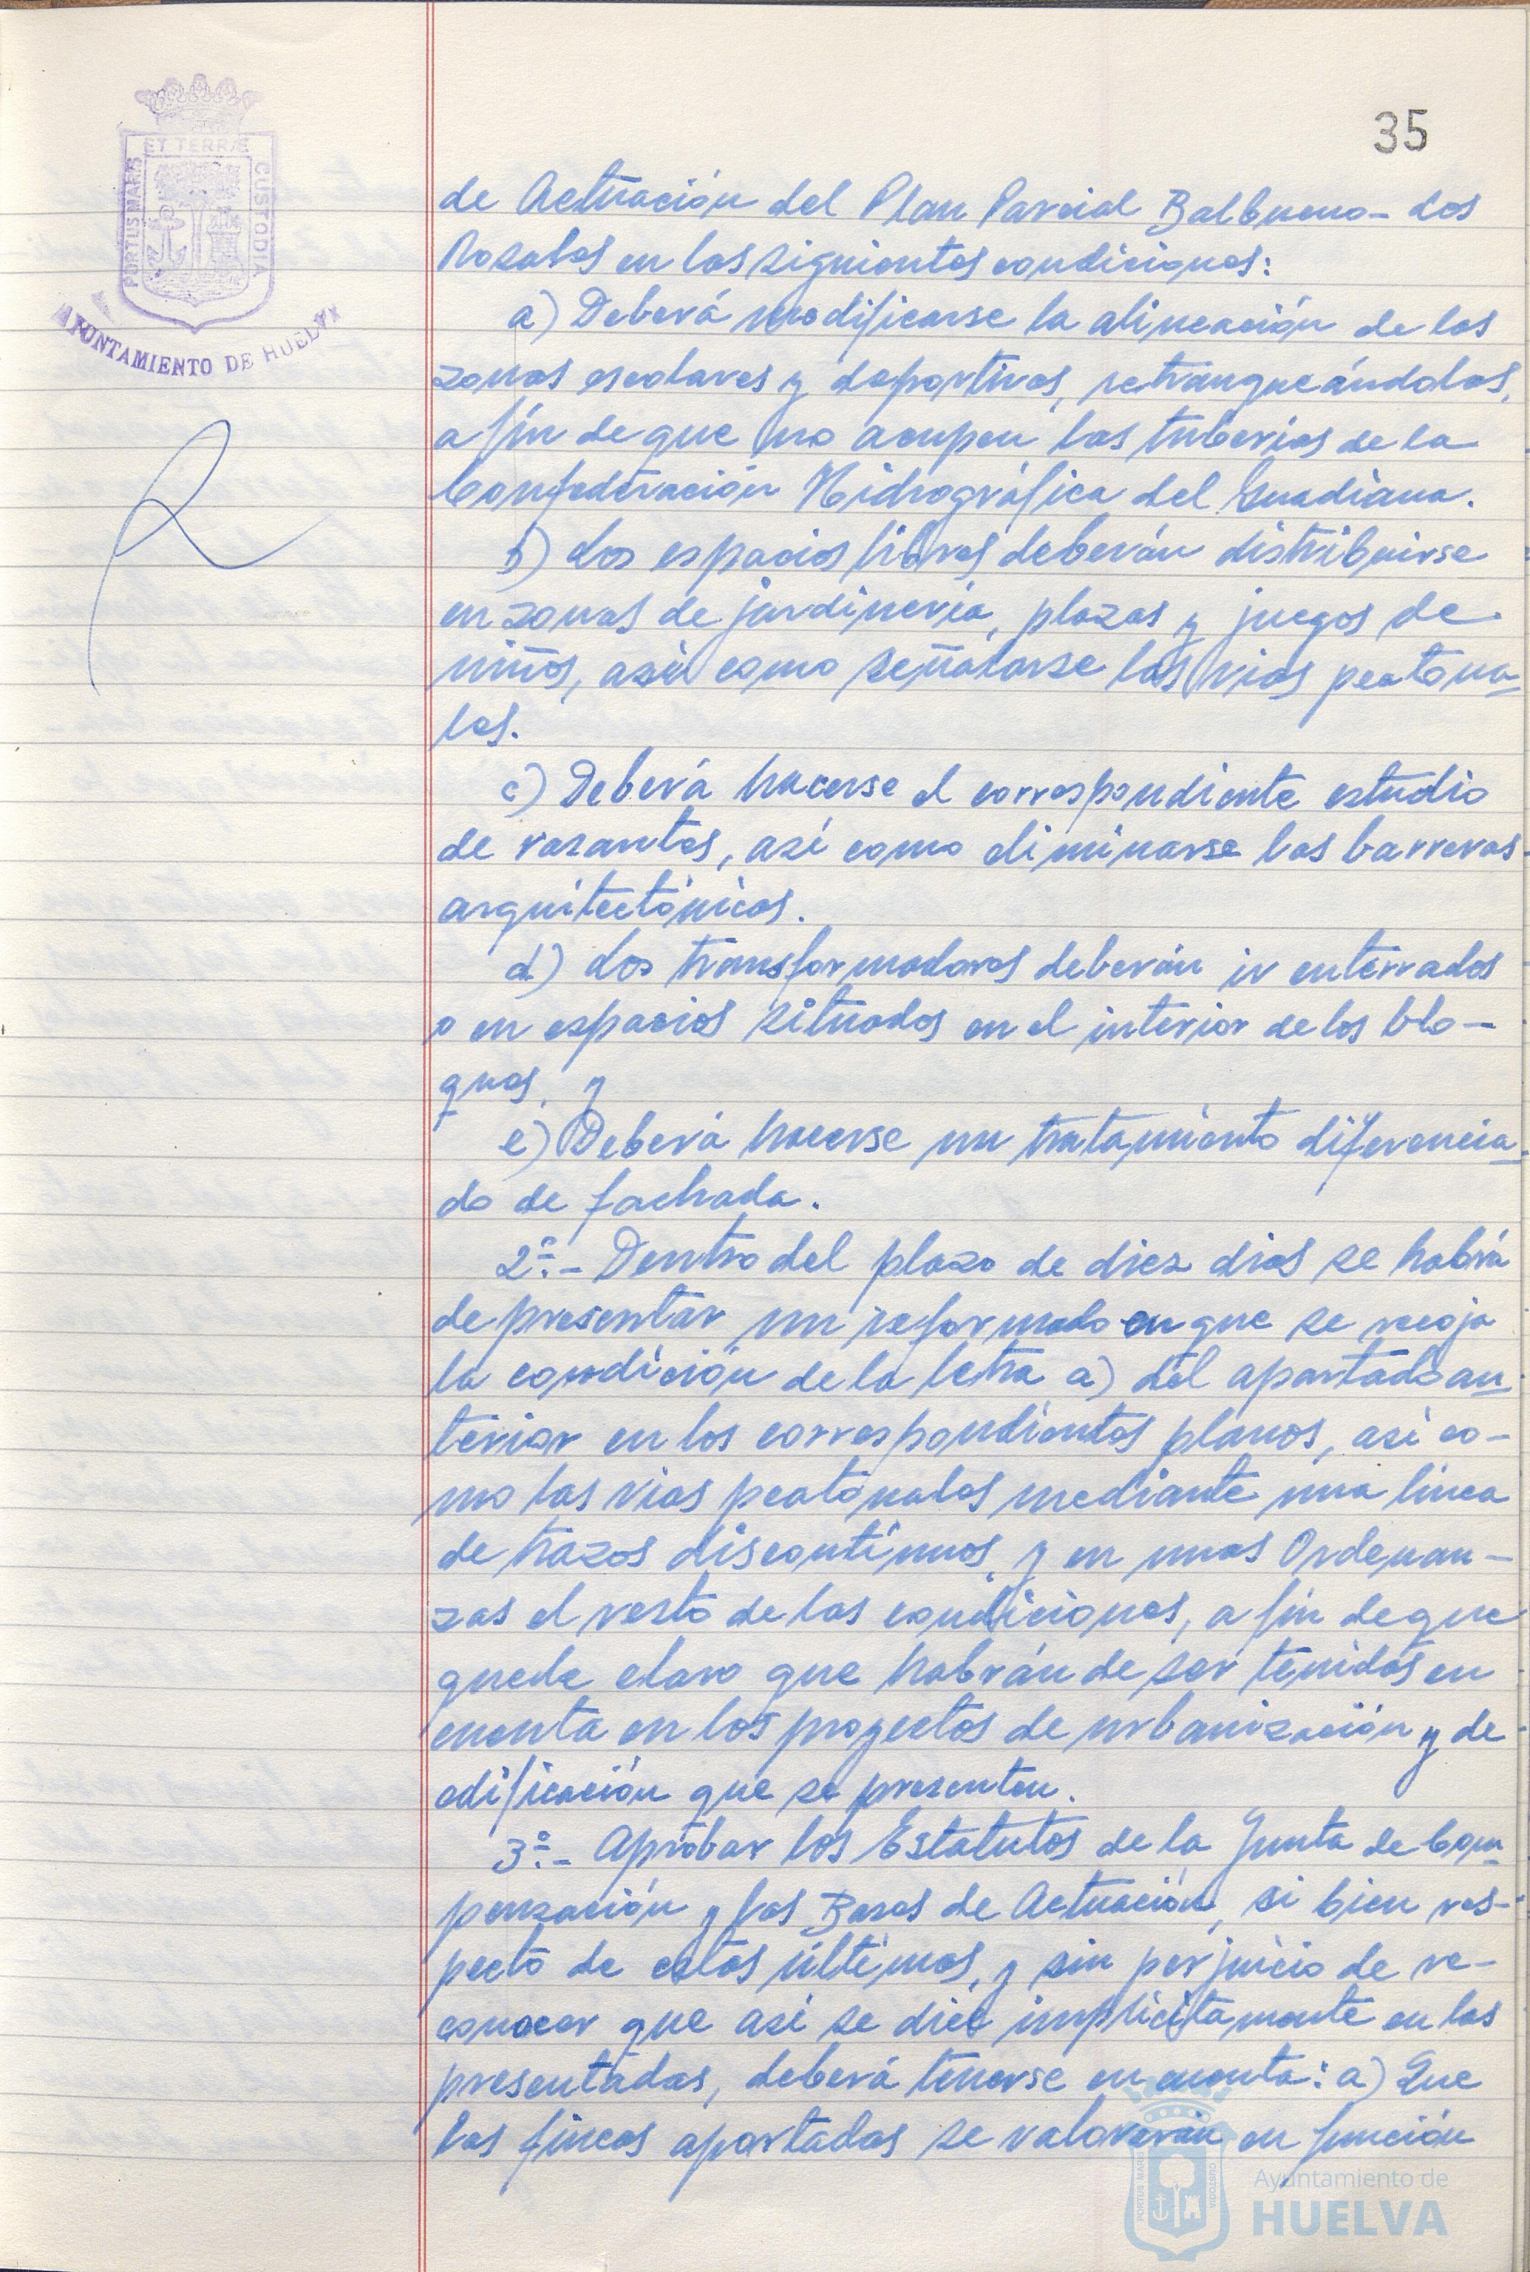 35
ET TERRÆ
PORTUS MARIS
CUSTODIA
AYUNTAMIENTO DE HUELVA
de Actuación del Plan Parcial Balbueno-Los
Rosales en las siguientes condiciones:
a) Deberá modificarse la alineación de las
zonas escolares y deportivas, retranqueándolas,
a fin de que no ocupen las tuberías de la
Confederación Hidrográfica del Guadiana.
b) Los espacios libres deberán distribuirse
en zonas de jardinería, plazas y juegos de
niños, así como señalarse las vías peatona-
les.
c) Deberá hacerse el correspondiente estudio
de rasantes, así como eliminarse las barreras
arquitectónicas.
d) Los transformadores deberán ir enterrados
o en espacios situados en el interior de los blo-
ques, y
e) Deberá hacerse un tratamiento diferencia-
do de fachada.
2º.- Dentro del plazo de diez días se habrá
de presentar un reformado en que se recoja
la condición de la letra a) del apartado an-
terior en los correspondientes planos, así co-
mo las vías peatonales mediante una línea
de trazos discontínuos, y en unas Ordenan-
zas el resto de las condiciones, a fin de que
quede claro que habrán de ser tenidas en
cuenta en los proyectos de urbanización y de
edificación que se presenten.
3º.- Aprobar los Estatutos de la Junta de Com-
pensación y las Bases de Actuación, si bien res-
pecto de estas últimas, y sin perjuicio de re-
conocer que así se dice implícitamente en las
presentadas, deberá tenerse en cuenta: a) Que
las fincas aportadas se valorarán en función
PORTUS MARIS
CUSTODIA
Ayuntamiento de
HUELVA